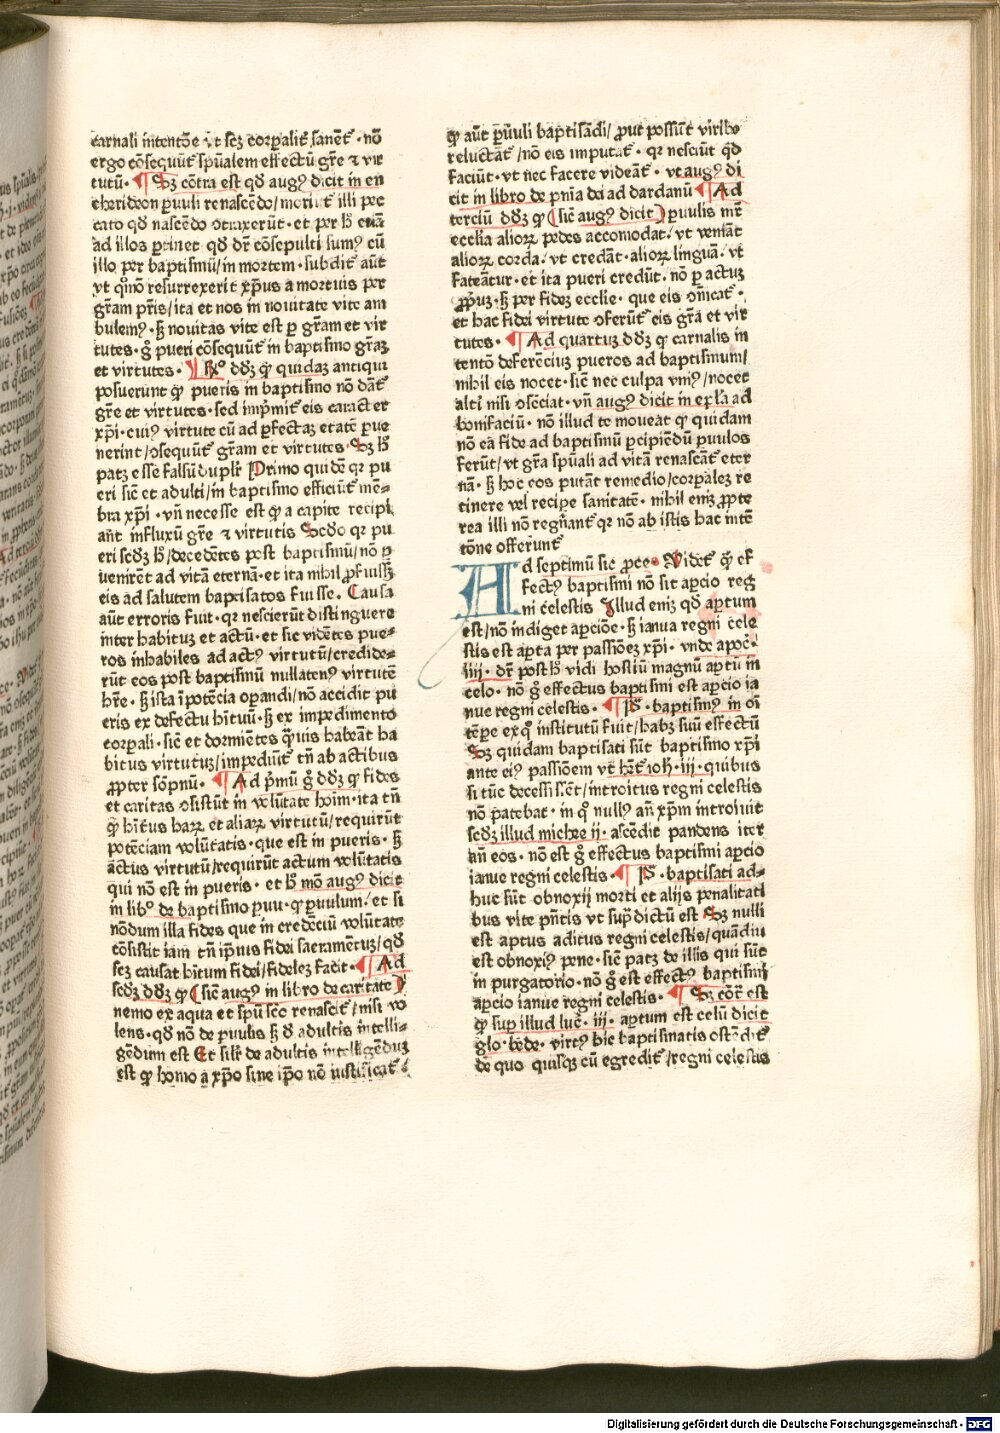 carnali intentōe vt scꝫ corꝑalit̄ sanēt᷑ · nō
ergo cōsequūt᷑ spūalem effectū gr̄e ⁊ vir
tutū · ¶ Sꝫ cōtra est qd̄ augꝰ dicit in en
cheridion ꝑuuli renascēdo / moriūt᷑ illi pec
cato qd̄ nascēdo ɔtraxerūt · et per hͦ etiā
ad illos ꝑtinet qd̄ dr̄ cōsepulti sumꝰ cū
illo per baptismū / in mortem · subdit᷑ aūt
vt quō resurrexerit xp̄us a mortuis per
gr̄am pr̄is / ita et nos in nouitate vite am
bulemꝰ · sꝫ nouitas vite est ꝑ gr̄am et vir
tutes · gͦ pueri cōsequūt᷑ in baptismo gr̄aꝫ
et virtutes · ¶ Rͦ dd̄ꝫ ꝙ quidaꝫ antiqui
posuerunt ꝙ pueris in baptismo nō dāt᷑
gr̄e et virtutes · sed imp̄mit᷑ eis caracter
xp̄i · cuiꝰ virtute cū ad ꝑfectaꝫ etatē ꝑue
nerint / ɔsequūt᷑ gr̄am et virtutes · Sꝫ hͦ
patꝫ esse falsū duplr̄ Primo quidē qr pu
eri sic̄ et adulti / in baptismo efficiūt᷑ mē-
bra xp̄i · vn̄ necesse est ꝙ a capite recipi
ant influxū gr̄e ⁊ virtutis Scd̄o qr pu
eri scd̄ꝫ hͦ / decedētes post baptismū / nō ꝑ
uenirēt ad vitā eternā · et ita nihil ꝓfuissꝫ
eis ad salutem baptisatos fuisse · Causa
aūt erroris fuit · qr nescierūt distinguere
inter habituꝫ et actū · et sic vidētes pue-
ros inhabiles ad actꝰ virtutū / credide-
rūt eos post baptismū nullatenꝰ virtutē
hr̄e · sꝫ ista īpotēcia oꝑandi / nō accidit pu
eris ex defectu hītuū · sꝫ ex impedimento
corꝑali · sic̄ et dormiētes ꝙuis habeāt ha
bitus virtutuꝫ / impediūt᷑ tn̄ ab actibus
ꝓpter sōpnū · ¶ Ad p̄mū gͦ dd̄ꝫ ꝙ fides
et caritas ɔsistūt in volūtate hoīm · ita tn̄
ꝙ hītus haꝝ et aliaꝝ virtutū / requirūt
potēciam volūtatis · que est in pueris · sꝫ
actus virtutū / requirūt actum volūtatis
qui nō est in pueris · et hͦ mō augꝰ dicit
in libͦ de baptismo puu · ꝙ ꝑuulum / et si
nōdum illa fides que in credēciū volūtate
cōsistit iam tn̄ ip̄ius fidei sacramētuꝫ / qd̄
scꝫ causat hītum fidei / fideleꝫ facit · ¶ Ad
scd̄ꝫ dd̄ꝫ ꝙ ( sic̄ augꝰ in libro de caritate )
nemo ex aqua et spū sc̄o renascit᷑ / nisi vo
lens · qd̄ nō de ꝑuulis sꝫ d̄ adultis intelli-
gēdum est Et sil̄r de adultis intelligēduꝫ
est ꝙ homo a xp̄o sine ip̄o nō iustificat᷑ ·
ꝙ aūt ꝑuuli baptisādi / ꝓut possūt viribꝰ
reluctāt᷑ / nō eis imputat᷑ · qr nesciūt qd̄
faciūt · vt nec facere videāt᷑ · vt augꝰ di
cit in libro de pn̄ia dei ad dardanū ¶ Ad
terciū dd̄ꝫ ꝙ ( sic̄ augꝰ dicit ) ꝑuulis mr̄
ecclia alioꝝ pedes accomodat · vt veniāt
alioꝝ corda · vt credāt · alioꝝ linguā · vt
fateātur · et ita pueri credūt · nō ꝑ actuꝫ
ꝓpriuꝫ · sꝫ per fideꝫ ecclie · que eis ɔīcat᷑ ·
et hac fidei virtute ɔferūt᷑ eis gr̄a et vir
tutes · ¶ Ad quartuꝫ dd̄ꝫ ꝙ carnalis in
tentō deferēciuꝫ pueros ad baptismum /
nihil eis nocet · sic̄ nec culpa vniꝰ / nocet
alti nisi ɔsēciat · vn̄ augꝰ dicit in ep̄la ad
bonifaciū · nō illud te moueat ꝙ quidam
nō ea fide ad baptismū ꝑcipiēdū ꝑuulos
ferūt / vt gr̄a spūali ad vitā renascāt᷑ eter
nā · sꝫ hoc eos putāt remedio / corꝑaleꝫ re
tinere vel recipe sanitatē · nihil eniꝫ ꝓpte
rea illi nō regn̄ant᷑ qr nō ab istis hac intē
tōne offerunt᷑
Ad septimū sic ꝓce · Videt᷑ ꝙ ef
fectꝰ baptismi nō sit aꝑcio reg
ni celestis Illud eniꝫ qd̄ aꝑtum
est / nō indiget aꝑciōe · sꝫ ianua regni cele
stis est aꝑta per passiōeꝫ xp̄i · vnde apoc̄ ·
iiij · dr̄ post hͦ vidi hostiū magnū aꝑtū in
celo · nō gͦ effectus baptismi est aꝑcio ia
nue regni celestis · ¶ Pͣ · baptismꝰ in oī
tēpe ex qͦ institutū fuit / habꝫ suū effectū
Sꝫ quidam baptisati sūt baptismo xp̄i
ante eiꝰ passiōem vt hēt᷑ ioh̄ · iij · quibus
si tūc decessissēt / introitus regni celestis
nō patebat · in qͦ nullꝰ an̄ xp̄m introiuit
scd̄ꝫ illud michee ij · ascēdit pandens iter
an̄ eos · nō est gͦ effectus baptismi aꝑcio
ianue regni celestis · ¶ Pͣ · baptisati ad-
huc sūt obnoxij morti et alijs penalitati
bus vite pn̄tis vt supͣ dictū est Sꝫ nulli
est aptus aditus regni celestis / quādiu
est obnoxiꝰ pene · sic̄ patꝫ de illis qui sūt
in purgatorio · nō gͦ est effectꝰ baptismi
aꝑcio ianue regni celestis · ¶ Sꝫ cōtͣ est
ꝙ suꝑ illud luc̄ · iij · aꝑtum est celū dicit
glo · bede · virtꝰ hic baptismatis ostēdit᷑
de quo quisqꝫ cū egredit᷑ / regni celestis
Digitalisierung gefördert durch die Deutsche Forschungsgemeinschaft - DFG